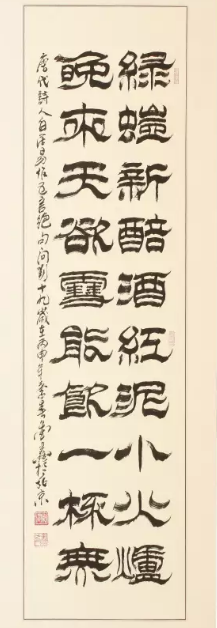 綠螘新醅酒紅泥小火爐
晚来天欲雪能飲一杯無
唐代詩人白居易作五言絕句問劉十九歲在丙申年季春於北京